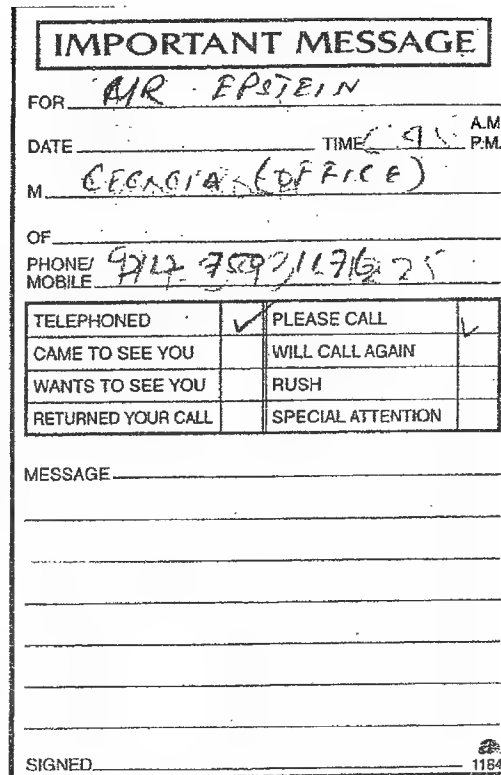 IMPORTANT MESSAGE
FOR MR. EPSTEIN
DATE TIME A.M. P.M.
M GEORGIA (OFFICE)
OF
PHONE/
MOBILE
TELEPHONED ✓ PLEASE CALL ✓
CAME TO SEE YOU WILL CALL AGAIN
WANTS TO SEE YOU RUSH
RETURNED YOUR CALL SPECIAL ATTENTION
MESSAGE
SIGNED 1184